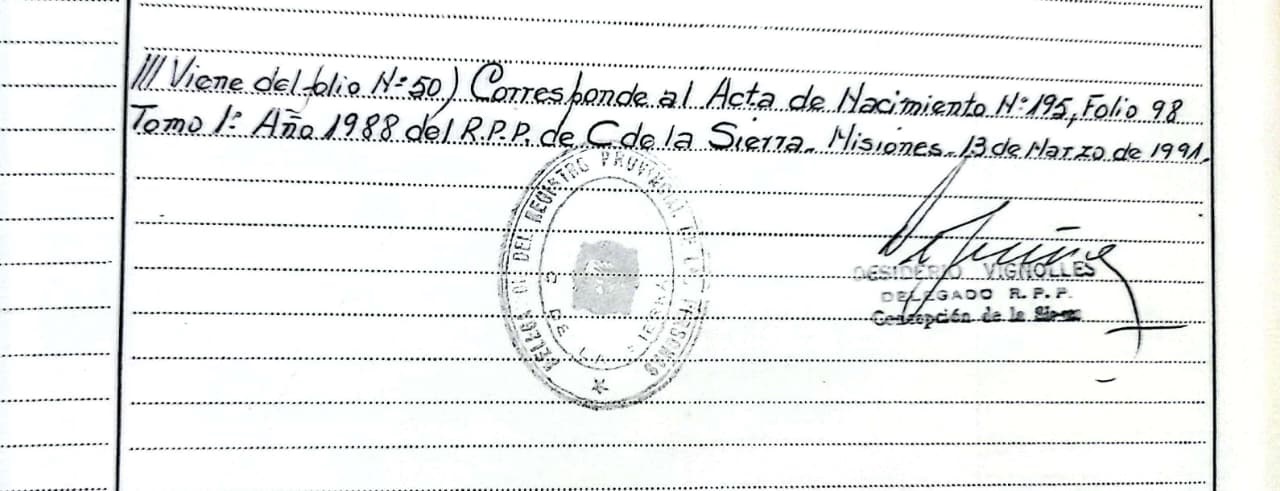 /// Viene del folio Nº 50) Corresponde al Acta de Nacimiento Nº 195, Folio 98
Tomo 1º Año 1988 del R.P.P. de C de la Sierra. Misiones. 13 de Marzo de 1991.
DEL REGISTRO PROVINCIAL DE LAS PERSONAS
C DE LA SIERRA
DESIDERIO VIGNOLLES
DELEGADO R. P. P.
Concepción de la Sierra